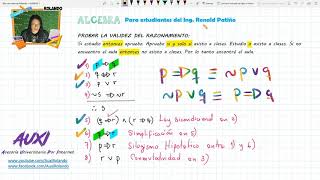 ROLANDO
ALGEBRA Para estudiantes del Ing. Ronald Patiño
PROBAR LA VALIDEZ DEL RAZONAMIENTO:
Si estudio entonces apruebo. Apruebo si y solo si asisto a clases. Estudio o asisto a clases. Si no
encuentro el aula entonces no asisto a clases. Por lo tanto encontré el aula.
1)
2)
3)
4)
∴ s
5) (q → r) ∧ (r → q) Ley bicondicional en 2)
6) q → r Simplificación en 5)
7) p → r Silogismo Hipotético entre 1) y 6)
8) r ∨ p Conmutatividad en 3)
p → q ≡ ~p ∨ q
p → q ≡ ~p ∨ q
AUXI
Asesoría Universitaria Por Internet
www.youtube.com/AuxiRolando
www.facebook.com/AuxiRolando